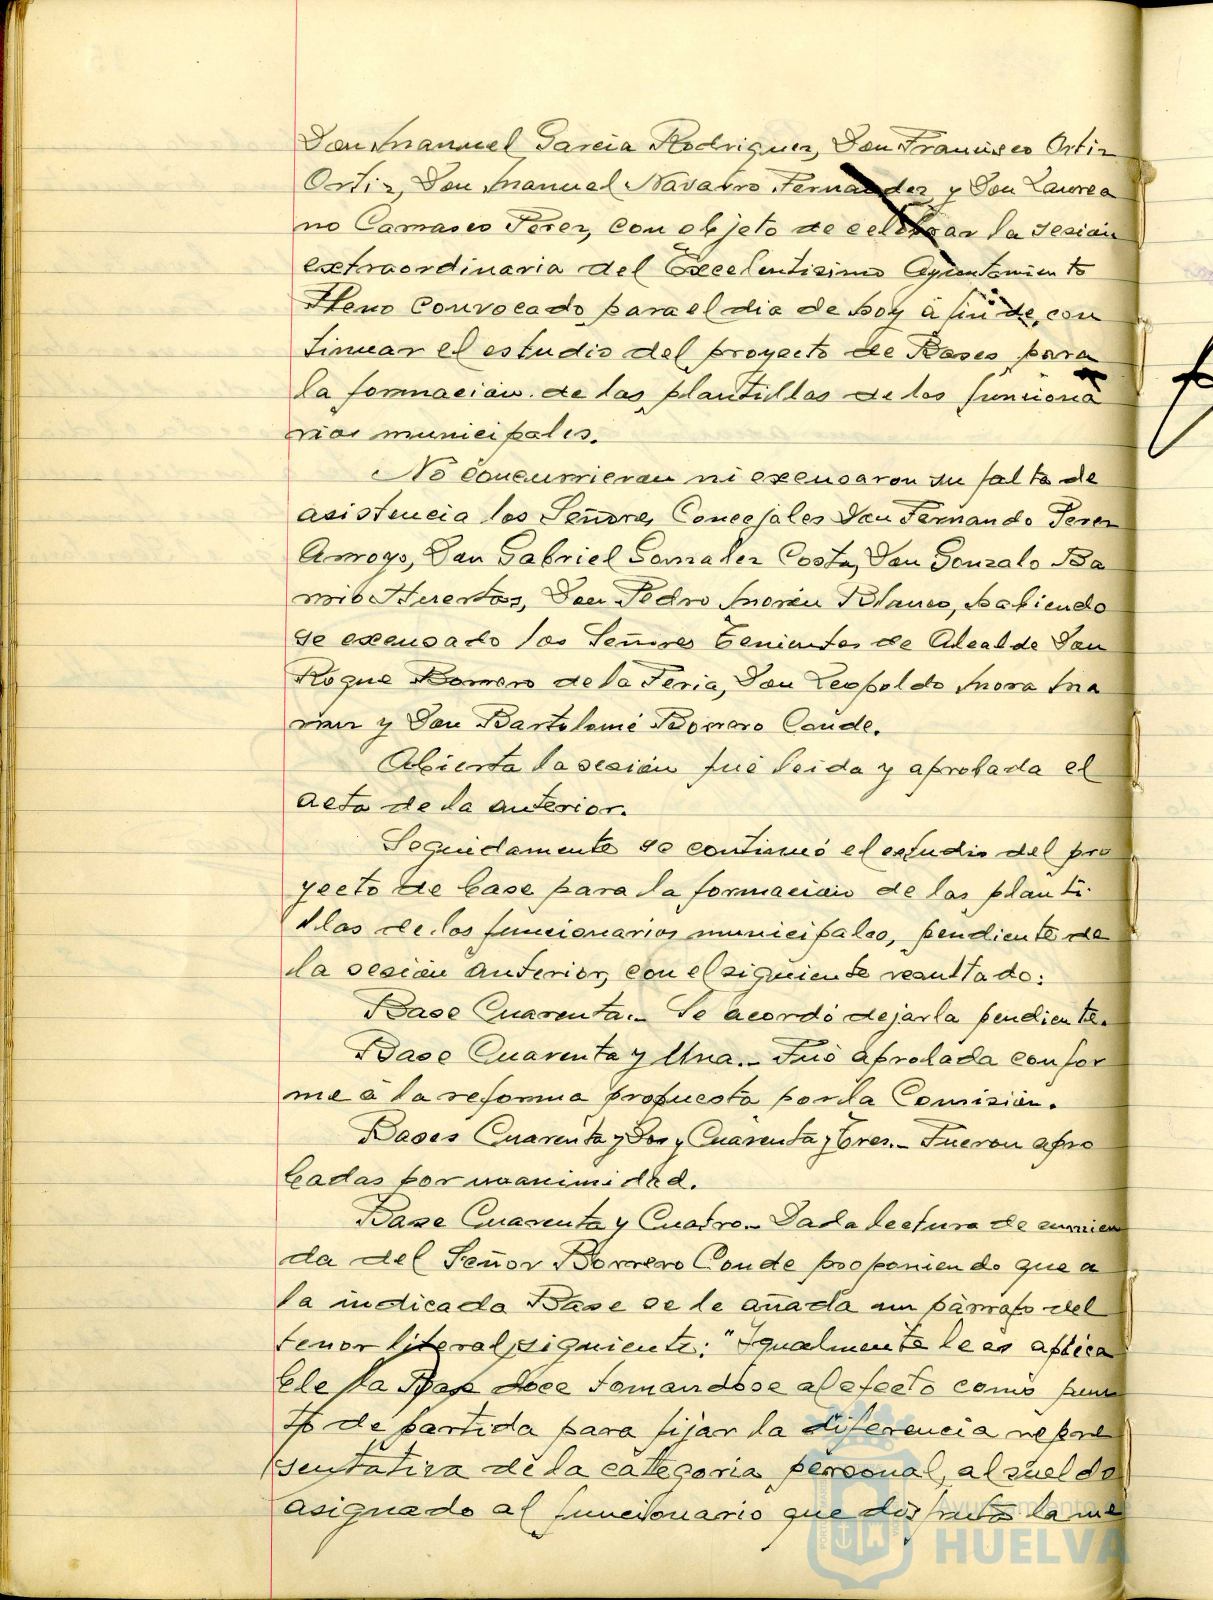 Don Manuel Garcia Rodriguez, Don Francisco Ortiz
Ortiz, Don Manuel Navarro Fernandez y Don Laurea
no Carrasco Perez, con objeto de celebrar la sesión
extraordinaria del Excelentisimo Ayuntamiento
Pleno convocado para el dia de hoy á fin de con
tinuar el estudio del proyecto de Bases para
la formación de las plantillas de los funciona
rios municipales.
No concurrieron ni excusaron su falta de
asistencia los Señores Concejales Don Fernando Perez
Arroyo, Don Gabriel Gonzalez Costa, Don Gonzalo Ba
rrio Huertos, Don Pedro Morón Blanco, habiendo
se excusado los Señores Tenientes de Alcalde Don
Roque Borrero de la Feria, Don Leopoldo Mora Ma
rin y Don Bartolomé Borrero Conde.
Abierta la sesión fué leida y aprobada el
acta de la anterior.
Seguidamente se continuó el estudio del pro
yecto de base para la formación de las planti
llas de los funcionarios municipales, pendiente de
la sesión anterior, con el siguiente resultado:
Base Cuarenta.- Se acordó dejarla pendiente.
Base Cuarenta y Una.- Fué aprobada confor
me á la reforma propuesta por la Comisión.
Bases Cuarenta y Dos y Cuarenta y Tres.- Fueron apro
badas por unanimidad.
Base Cuarenta y Cuatro.- Dada lectura de enmien
da del Señor Borrero Conde proponiendo que a
la indicada Base se le añada un párrafo del
tenor literal siguiente: "Igualmente le es aplica
ble la Base doce tomandose al efecto como pun
to de partida para fijar la diferencia repre
sentativa de la categoria personal, al sueldo
asignado al funcionario que disfruta la me
Ayuntamiento de
HUELVA